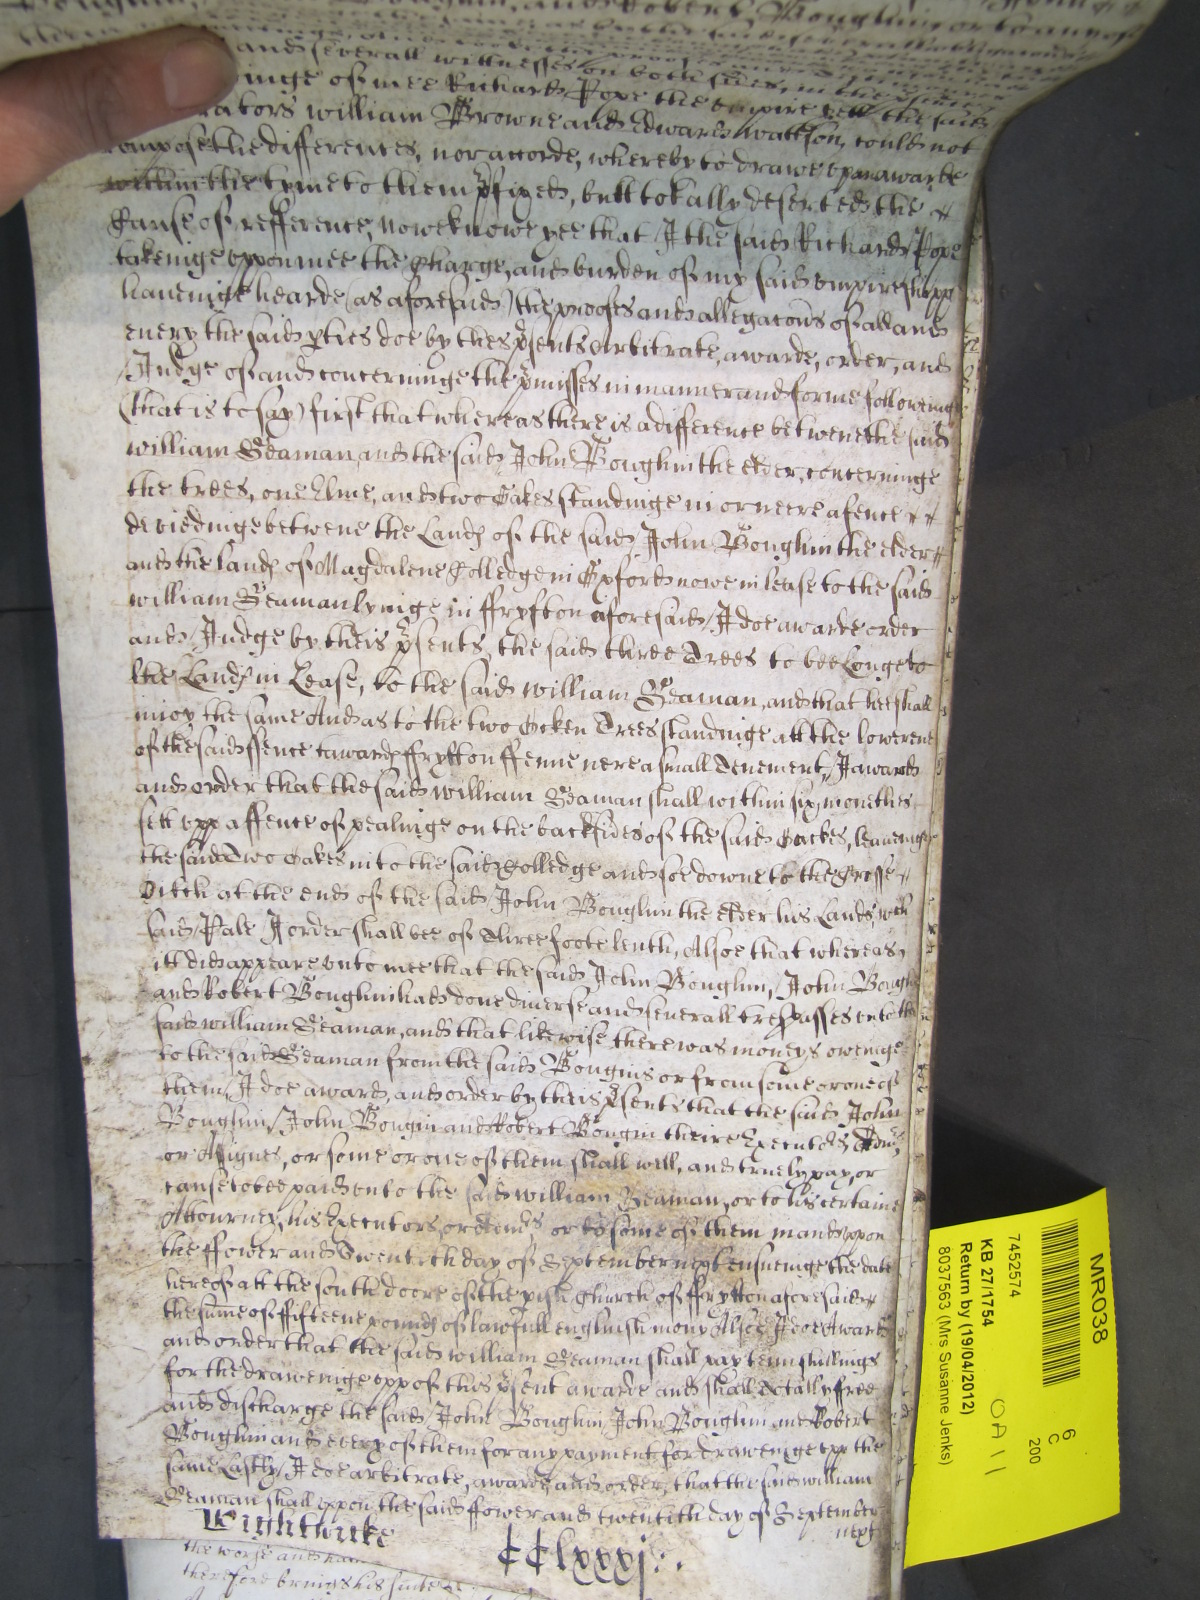 and severall wittnesses on both sides, in the
inge of mee Richard Pope the umpire yett the said
rators William Browne and Edward Wattson, could not
compose the differences, nor accorde, whereby to drawe upp an awarde
within the tyme to them p̄fixed, butt totally deserted the
Cause of refference, nowe knowe yee that I the said Richard Pope
takeinge uppon mee the Charge, and burden of my said umpireshipp
haueinge hearde (as aforesaid) the proofes and allegacons of all and
euery the said p̱ties doe by thes p̄sents Arbitrate, awarde, order, and
Judge of and concerninge the p̄misses in manner and forme followinge
(that is to say) first that whereas there is a difference betwene the said
William Seaman, and the said John Boughin the elder, concerninge
the trees, one Elme, and two Oakes standinge in or neere a fence
devidinge betwene the Land of the said John Boughin the elder
and the land of Magdalene Colledge in Oxford nowe in lease to the said
William Seaman lyinge in ffryfton aforesaid, I doe awarde order
and Judge by theis p̄sents, the said three Trees to bee Longe to
the Land in Lease, to the said William Seaman, and that hee shall
inioy the same And as to the two Ocken Trees standinge att the lower end
of the said ffence toward ffrytton ffenne nere a small Tenement, I award
and order that the said William Seaman shall within six monethes
sett upp a ffence of pealinge on the backsides of the said Oackes, leaueinge
the said Two Oakes into the said Colledge and soe downe to the Crosse
Ditch at the end of the said John Boughin the elder his Lands, wch
said Pale I order shall bee of Three foote lenth, Alsoe that whereas,
itt did appeare unto mee that the said John Boughin, John Bough
and Robert Boughin had done diverse and seuerall trespasses unto the
said William Seaman, and that likewise there was moneys oweinge
to the said Seaman from the said Bougins or from some or one of
them, I doe award, and order by theis p̄sents that the said John
Boughin, John Bougin and Robert Bougin theire Executors, Admrs
or Assignes, or some or one of them shall well, and truely pay, or
cause to bee paid unto the said William Seaman, or to his certaine
Attourney, his Executors, or Admrs or to some of them in and uppon
the ffower and Twentith day of September next ensueinge the date
hereof att the south doore of the pish Church of ffrytton aforesaid
the sume of ffifteene pound of lawfull english mony Alsoe I doe Award
and order that the said William Seaman shall pay tenn shillings
for the draweinge upp of this p̄sent awarde and shall Totally free
and discharge the said John Boughin John Boughin and Robert
Boughin and every of them for any payment for draweinge upp the
same Lastly, I doe arbitrate, awarde and order, that the said William
Seaman shall uppon the said ffower and twentith day of September
next
Wightwicke
CClxxxj
therefore brings his suite
MR038
7452574
KB 27/1754
Return by (19/04/2012)
8037563 (Mrs Susanne Jenks)
6
C
200
OA11